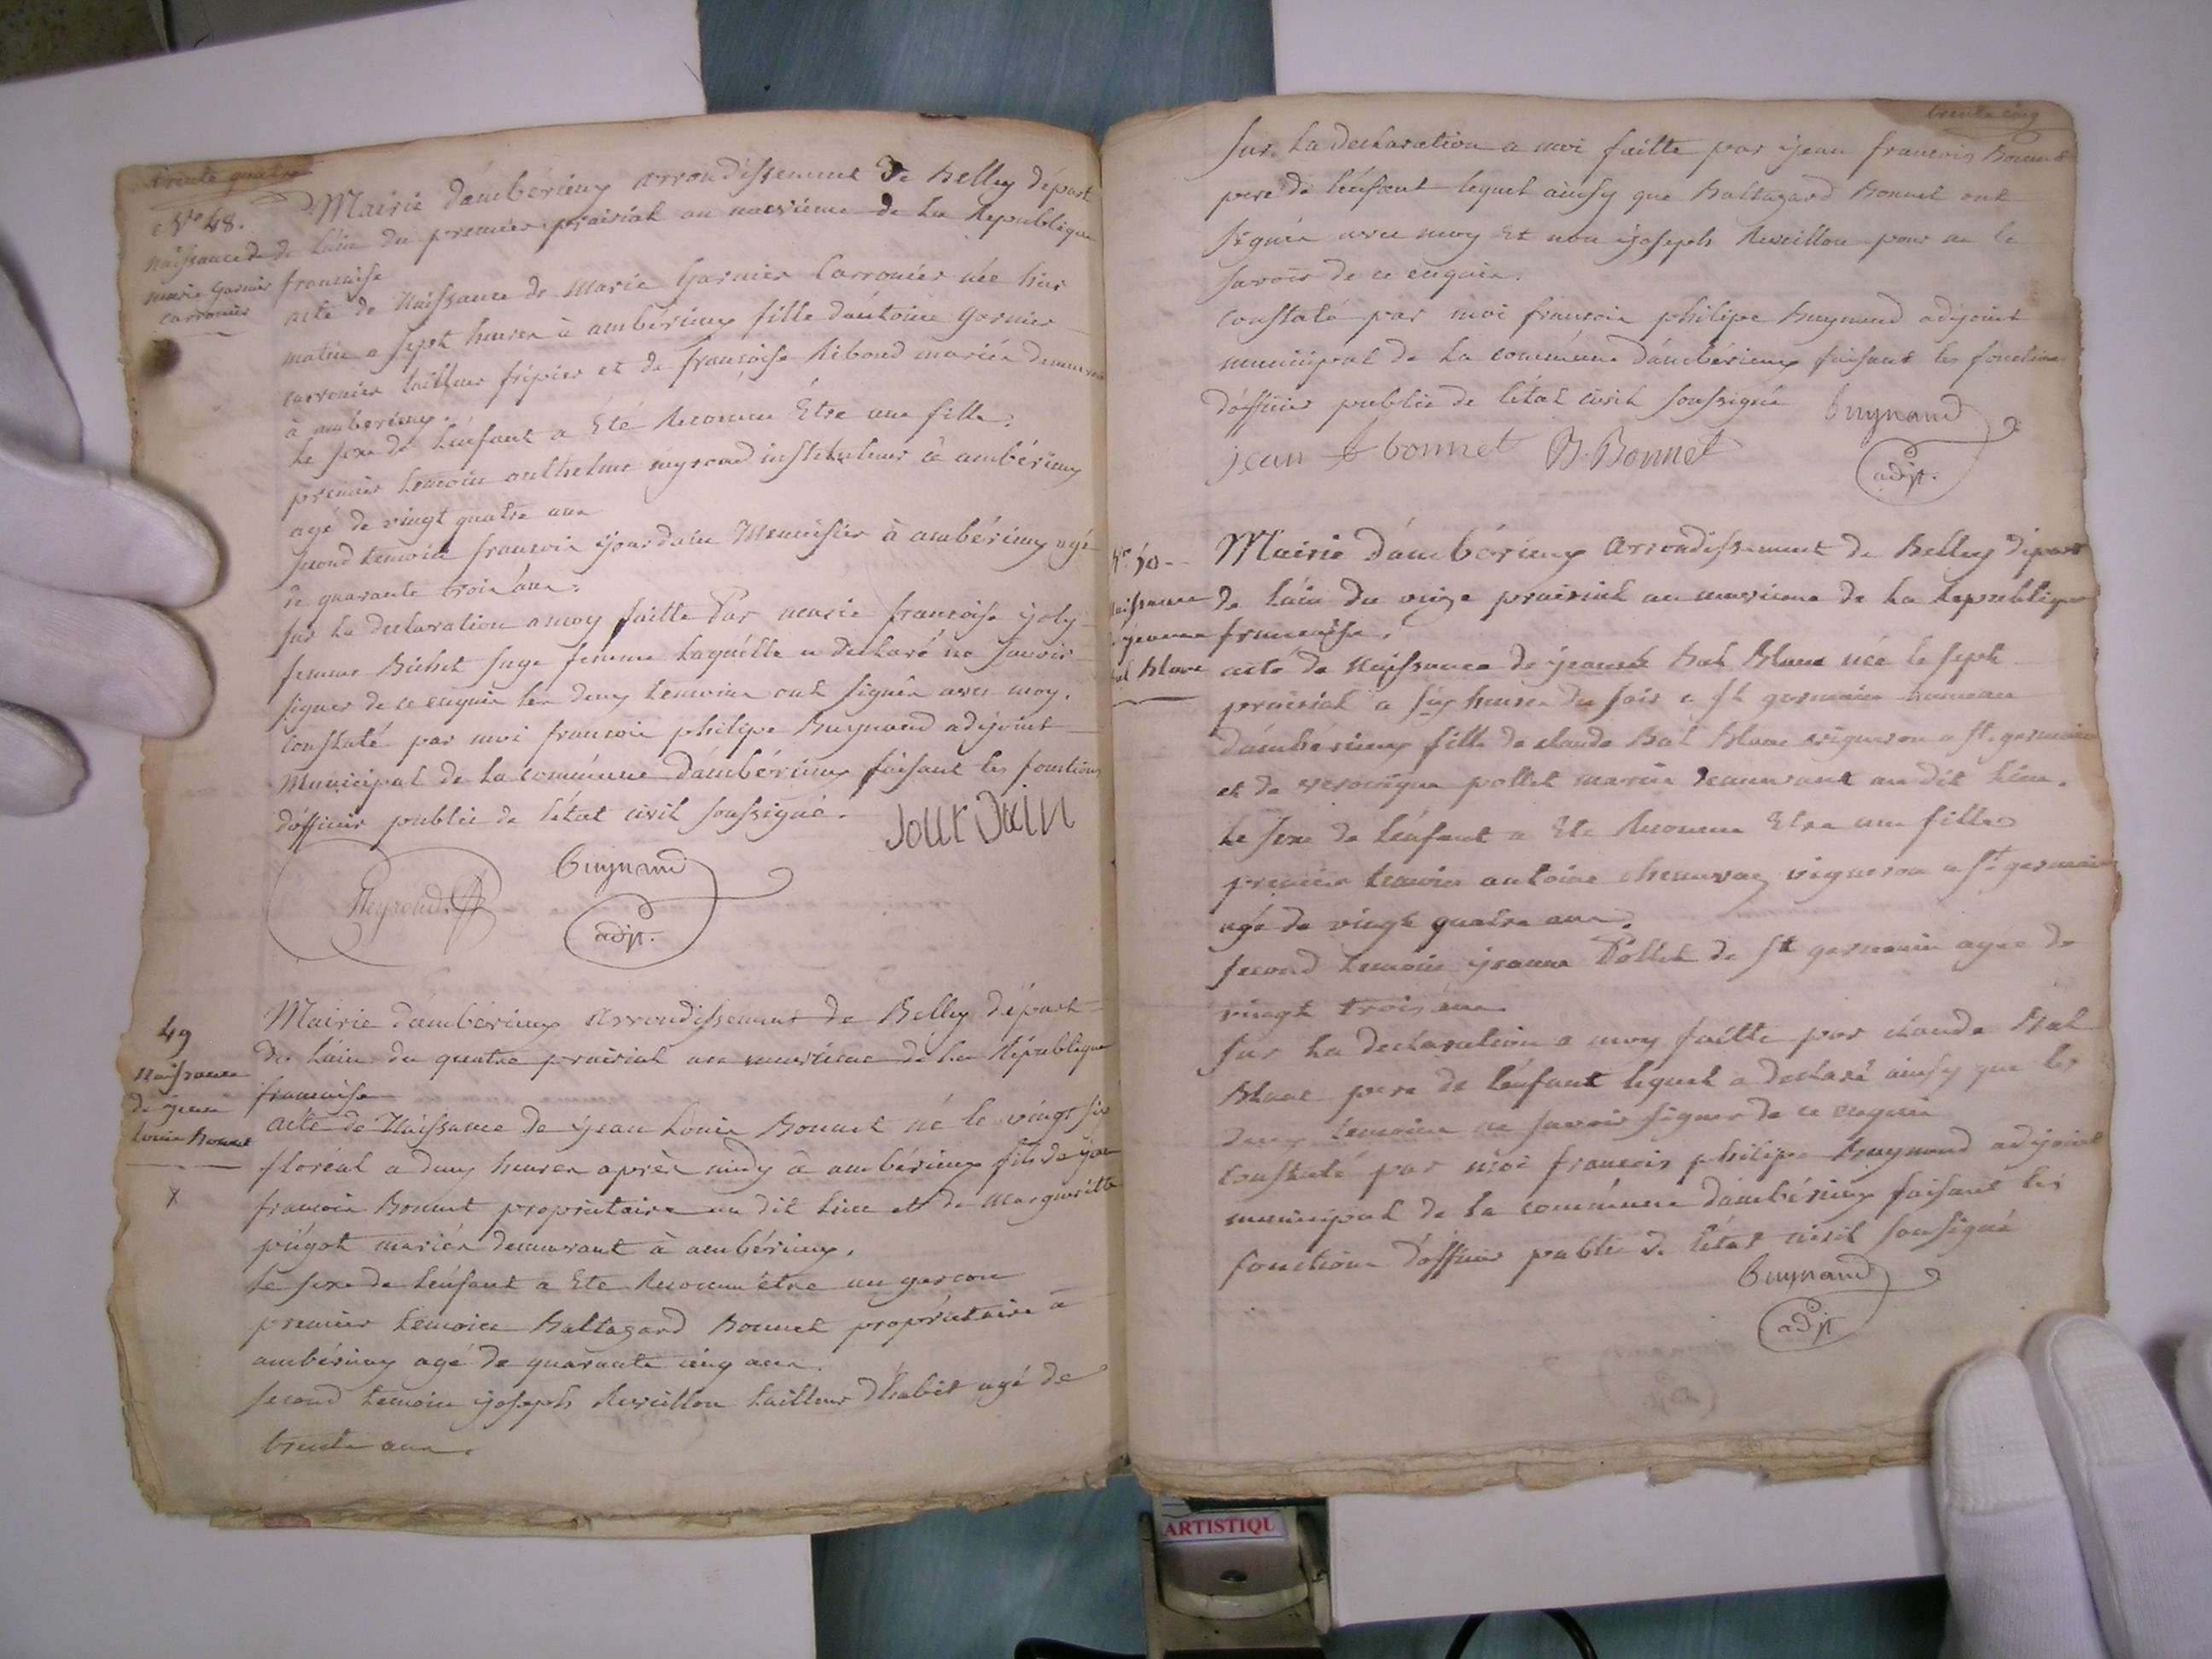 trente quatre
No 48.
naissance de
marie Garnier
carronier
Mairie d'ambérieux arrondissement de Belley départ
de l'ain du premier prairial an onzieme de la Republique
francaise
acte de Naissance de Marie Garnier Carronier née hier
matin a sept heures à ambérieux fille d'antoine Garnier
carronier tailleur fripier et de françoise Riboud mariés demeurant
à ambérieux.
le sexe de l'enfant a Eté Reconnu Etre une fille.
premier temoin anthelme instituteur à ambérieux
agé de vingt quatre ans
second temoin francois Jourdain Menuisier à ambérieux agé
de quarante trois ans.
sur la declaration a moy faitte Par marie francoise joly
femme Bichet sage femme laquélle a declaré ne savoir
signer de ce enquis les deux temoins ont signés avec moy.
constaté par moi francois philipe Buynand adjoint
Municipal de la commune d'ambérieux faisant les fonctions
d'officier public de l'état civil soussigné.
Jourdain
Buynand
adjt.
49
Naissance
de jean
Louis Bonnet
Mairie d'ambérieux arrondissement de Belley départ
de l'ain du quatre prairial an onzieme de la République
francaise
acte de Naissance de jean Louis Bonnet né le vingt six
floréal a deux heures après midy à ambérieux fils de jean
francois Bonnet propriétaire au dit lieu et de Margueritte
mariés demeurant à ambérieux.
le sexe de l'enfant a Eté Reconnu être un garcon
premier temoin Baltazard Bonnet propriétaire à
ambérieux agé de quarante cinq ans.
second temoin joseph Reveillon tailleur d'habit agé de
trente ans.
trente cinq
sur la declaration a moi faitte par jean francois Bonnet
pere de l'enfant lequel ainsy que Baltazard Bonnet ont
signés avec moy Et non joseph Reveillon pour ne le
savoir de ce enquis.
constaté par moi francois philipe Buynand adjoint
municipal de la commune d'ambérieux faisant les fonctions
d'officier public de l'état civil soussigné
Buynand
jean f bonnet B. Bonnet
adjt.
No 50
naissance
jeanne
Bal Blanc
Mairie d'ambérieux arrondissement de Belley départ
de l'ain du prairial an onzieme de la Republique
francaise.
acte de Naissance de jeanne Bal Blanc née le sept
prairial a six heures du soir a St germain hameau
d'ambérieux fille de claude Bal Blanc vigneron a St. germain
et de veronique pollet mariés demeurant au dit lieu.
le sexe de l'enfant a Eté Reconnu Etre une fille
premier temoin antoine vigneron a St germain
agé de vingt quatre ans.
second temoin jeanne Pollet de St germain agee de
vingt trois ans
sur la declaration a moy faitte par claude Bal
Blanc pere de l'enfant lequel a declaré ainsy que les
deux temoins ne savoir signer de ce enquis
constaté par moi francois philipe Buynand adjoint
municipal de la commune d'ambérieux faisant les
fonctions d'officier public de l'état civil soussigné
Buynand
adjt
ARTISTIQU